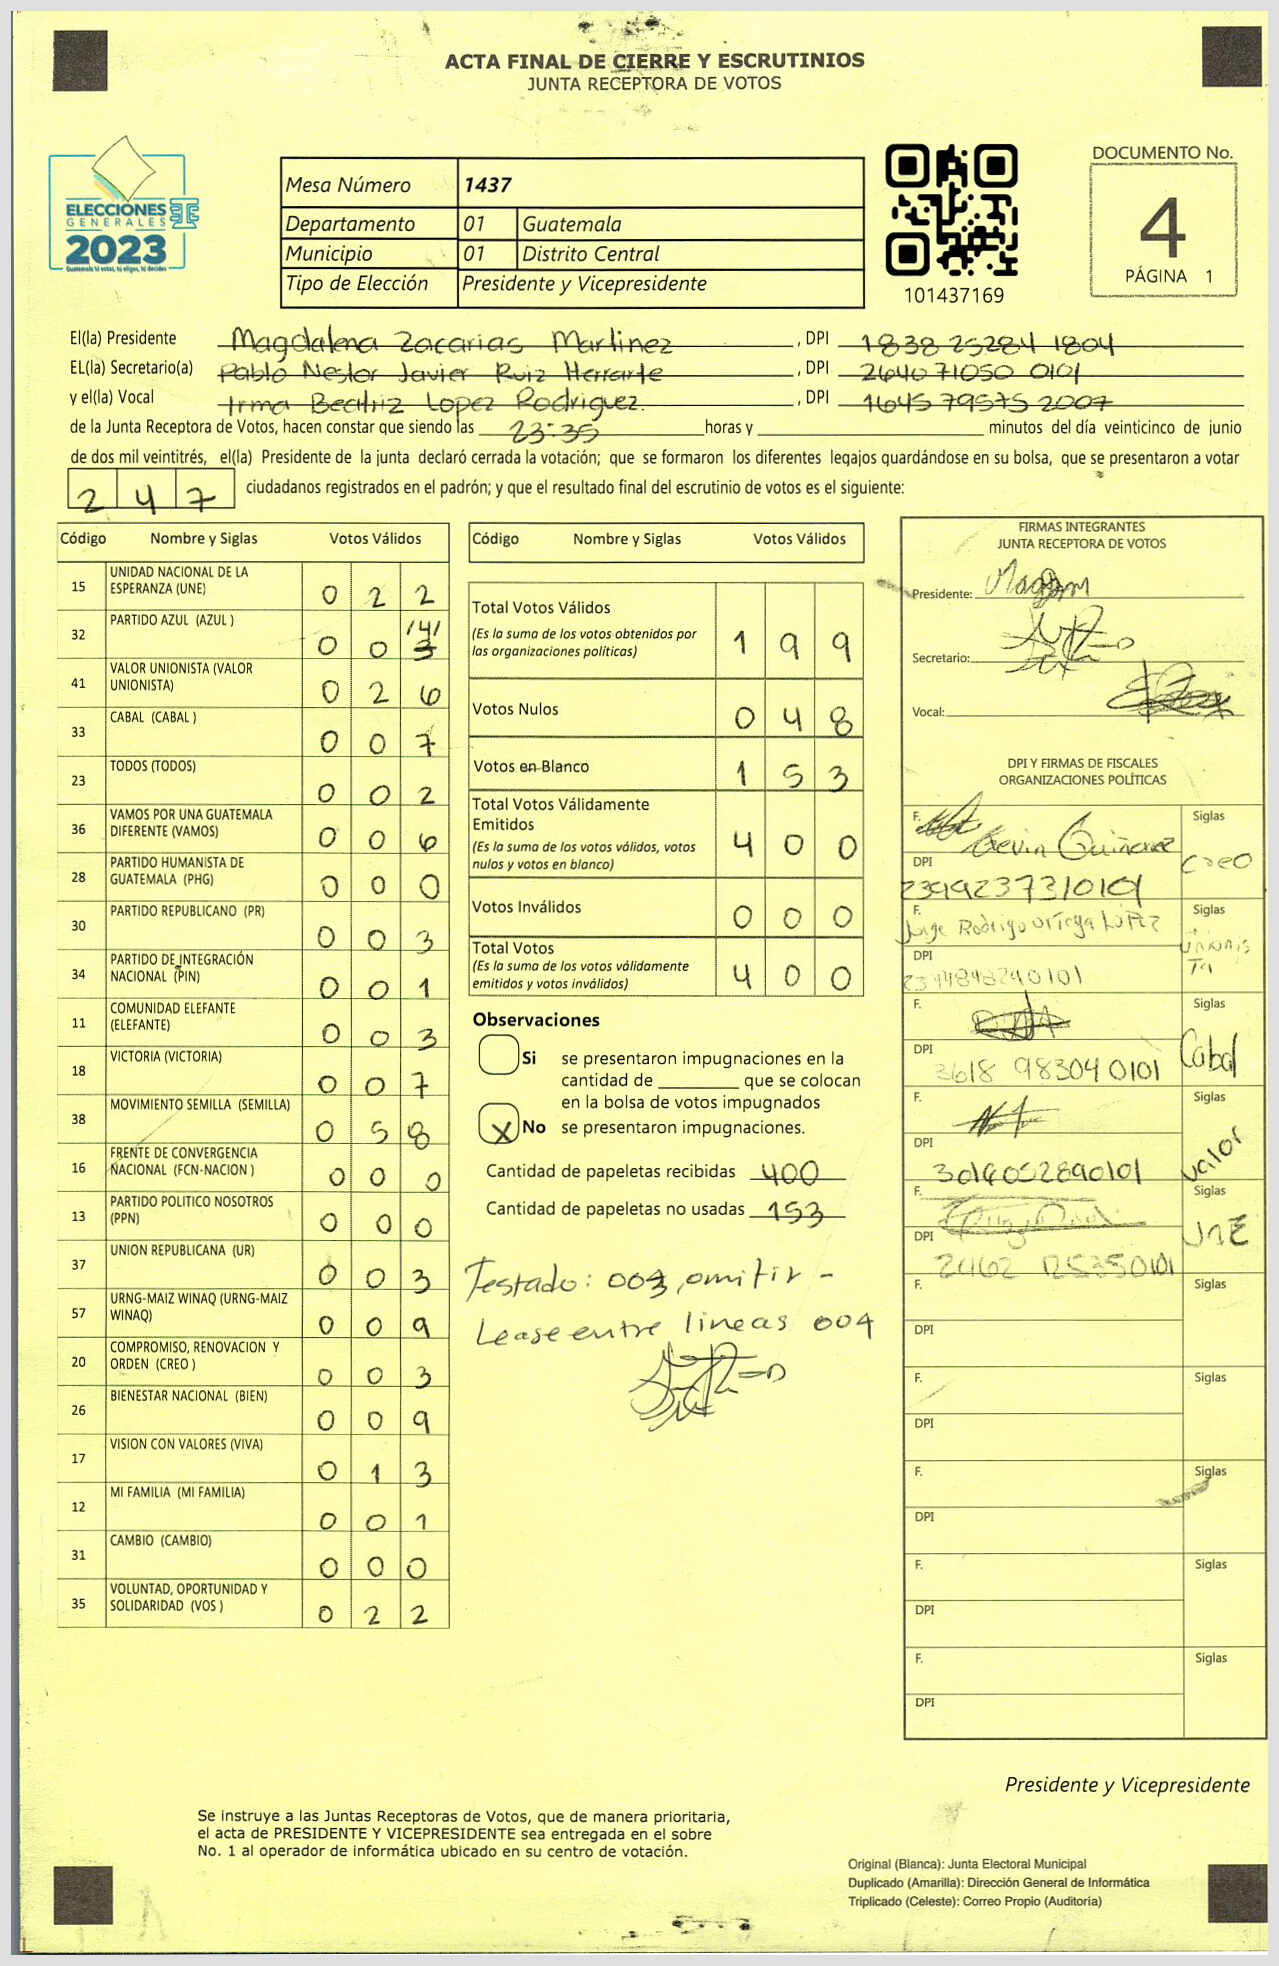 ACTA FINAL DE CIERRE Y ESCRUTINIOS
JUNTA RECEPTORA DE VOTOS
ELECCIONES
GENERALES
2023
Guatemala tú votas, tú eliges, tú decides
Mesa Número 1437
Departamento 01 Guatemala
Municipio 01 Distrito Central
Tipo de Elección Presidente y Vicepresidente
101437169
DOCUMENTO No.
4
PÁGINA 1
El(la) Presidente Magdalena Zacarias Martinez, DPI 1838 25284 1804
EL(la) Secretario(a) Pablo Nestor Javier Ruiz Herrarte, DPI 2640 71050 0101
y el(la) Vocal Irma Beatriz Lopez Rodriguez., DPI 1645 79575 2007
de la Junta Receptora de Votos, hacen constar que siendo las 23:35 horas y minutos del día veinticinco de junio
de dos mil veintitrés, el(la) Presidente de la junta declaró cerrada la votación; que se formaron los diferentes legajos quardándose en su bolsa, que se presentaron a votar
247 ciudadanos registrados en el padrón; y que el resultado final del escrutinio de votos es el siguiente:
Código Nombre y Siglas Votos Válidos
15 UNIDAD NACIONAL DE LA ESPERANZA (UNE) 0 2 2
32 PARTIDO AZUL (AZUL ) 0 0 3 /4/
41 VALOR UNIONISTA (VALOR UNIONISTA) 0 2 6
33 CABAL (CABAL ) 0 0 7
23 TODOS (TODOS) 0 0 2
36 VAMOS POR UNA GUATEMALA DIFERENTE (VAMOS) 0 0 6
28 PARTIDO HUMANISTA DE GUATEMALA (PHG) 0 0 0
30 PARTIDO REPUBLICANO (PR) 0 0 3
34 PARTIDO DE INTEGRACIÓN NACIONAL (PIN) 0 0 1
11 COMUNIDAD ELEFANTE (ELEFANTE) 0 0 3
18 VICTORIA (VICTORIA) 0 0 7
38 MOVIMIENTO SEMILLA (SEMILLA) 0 5 8
16 FRENTE DE CONVERGENCIA NACIONAL (FCN-NACION ) 0 0 0
13 PARTIDO POLITICO NOSOTROS (PPN) 0 0 0
37 UNION REPUBLICANA (UR) 0 0 3
57 URNG-MAIZ WINAQ (URNG-MAIZ WINAQ) 0 0 9
20 COMPROMISO, RENOVACION Y ORDEN (CREO ) 0 0 3
26 BIENESTAR NACIONAL (BIEN) 0 0 9
17 VISION CON VALORES (VIVA) 0 1 3
12 MI FAMILIA (MI FAMILIA) 0 0 1
31 CAMBIO (CAMBIO) 0 0 0
35 VOLUNTAD, OPORTUNIDAD Y SOLIDARIDAD (VOS ) 0 2 2
Código Nombre y Siglas Votos Válidos
Total Votos Válidos 1 9 9
(Es la suma de los votos obtenidos por
las organizaciones políticas)
Votos Nulos 0 4 8
Votos en Blanco 1 5 3
Total Votos Válidamente
Emitidos 4 0 0
(Es la suma de los votos válidos, votos
nulos y votos en blanco)
Votos Inválidos 0 0 0
Total Votos 4 0 0
(Es la suma de los votos válidamente
emitidos y votos inválidos)
Observaciones
Si se presentaron impugnaciones en la
cantidad de que se colocan
en la bolsa de votos impugnados
X No se presentaron impugnaciones.
Cantidad de papeletas recibidas 400
Cantidad de papeletas no usadas 153
Testado: 003, omitir -
Lease entre lineas 004
FIRMAS INTEGRANTES
JUNTA RECEPTORA DE VOTOS
Presidente:
Secretario:
Vocal:
DPI Y FIRMAS DE FISCALES
ORGANIZACIONES POLÍTICAS
F. Kevin Quiñonez Siglas Creo
DPI 2399237310101
F. Jorge Rodrigo Ortega López Siglas
DPI
F. Siglas Cabal
DPI 3618 98304 0101
F. Siglas Valor
DPI 3016052890101
F. Siglas UNE
DPI 2462 125350101
F. Siglas
DPI
F. Siglas
DPI
F. Siglas
DPI
F. Siglas
DPI
F. Siglas
DPI
Presidente y Vicepresidente
Se instruye a las Juntas Receptoras de Votos, que de manera prioritaria,
el acta de PRESIDENTE Y VICEPRESIDENTE sea entregada en el sobre
No. 1 al operador de informática ubicado en su centro de votación.
Original (Blanca): Junta Electoral Municipal
Duplicado (Amarilla): Dirección General de Informática
Triplicado (Celeste): Correo Propio (Auditoría)